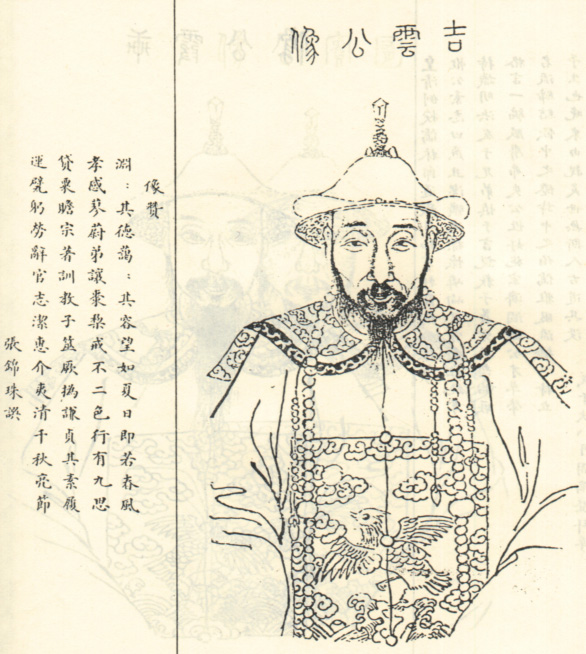 吉雲公像
像贊
淵：其德藹：其容望如夏日即若春風
孝感蓼蔚弟讓棗梨戒不二色行有九思
貸粟贍宗著訓教子厥撝謙貞其素履
運甓躬勞辭官志潔惠介夷清千秋亮節
張錦珠譔